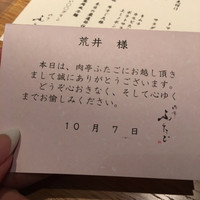 荒井　様
本日は、肉亭ふたごにお越し頂き
まして誠にありがとうございます。
どうぞ心おきなく、そして心ゆく
までお愉しみください。
10月7日
ふたご